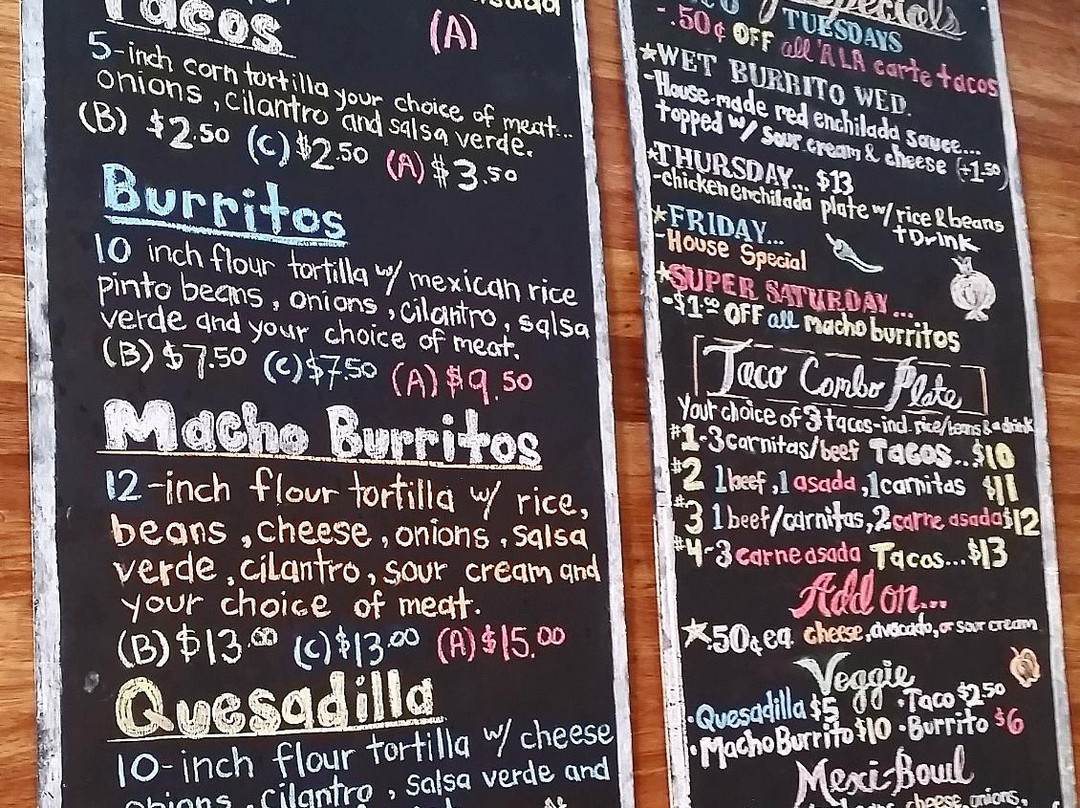 asada
Tacos (A)
5-inch corn tortilla your choice of meat...
onions, cilantro and salsa verde.
(B) $2.50 (C) $2.50 (A) $3.50
Burritos
10 inch flour tortilla w/ mexican rice
pinto beans, onions, cilantro, salsa
verde and your choice of meat.
(B) $7.50 (C) $7.50 (A) $9.50
Macho Burritos
12-inch flour tortilla w/ rice,
beans, cheese, onions, salsa
verde, cilantro, sour cream and
your choice of meat.
(B) $13.00 (C) $13.00 (A) $15.00
Quesadilla
10-inch flour tortilla w/ cheese
onions, cilantro, salsa verde and
Specials
TUESDAYS
-.50¢ OFF all 'A LA carte tacos
WET BURRITO WED.
-House-made red enchilada sauce...
topped w/ sour cream & cheese (+1.50)
THURSDAY... $13
-chicken enchilada plate w/ rice & beans
+Drink
FRIDAY...
-House Special
SUPER SATURDAY...
-$1.00 OFF all macho burritos
Taco Combo Plate
Your choice of 3 tacos-incl. rice/beans & a drink
#1-3 carnitas/beef Tacos...$10
#2 1 beef, 1 asada, 1 carnitas $11
#3 1 beef/carnitas, 2 carne asada $12
#4-3 carne asada Tacos...$13
Add on...
.50¢ ea. cheese, avocado, or sour cream
Veggie
·Quesadilla $5 ·Taco $2.50
·Macho Burrito $10 ·Burrito $6
Mexi-Bowl
cheese, onions,